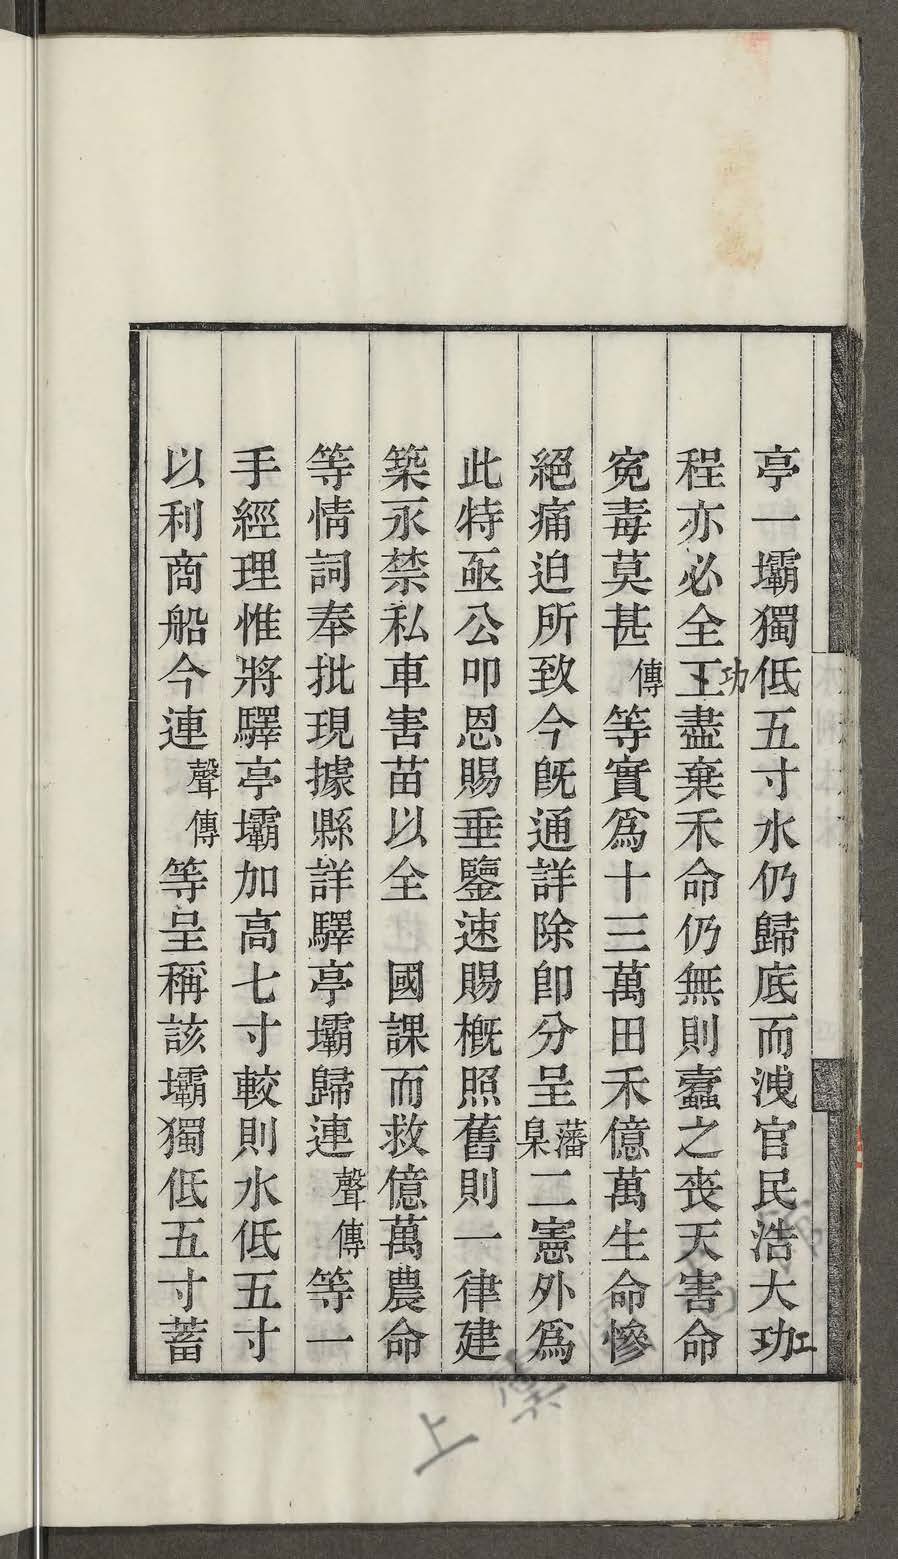 亭一壩獨低五寸水仍歸底而洩官民浩大功工
程亦必全王功盡棄禾命仍無則蠧之喪天害命
寃毒莫甚傳等實爲十三萬田禾億萬生命慘
絕痛迫所致今旣通詳除卽分呈藩臬二憲外爲
此特亟公叩恩賜垂鑒速賜槪照舊則一律建
築永禁私車害苗以全　國課而救億萬農命
等情詞奉批現據縣詳驛亭壩歸連聲傳等一
手經理惟將驛亭壩加高七寸較則水低五寸
以利商船今連聲傳等呈稱該壩獨低五寸蓄
上